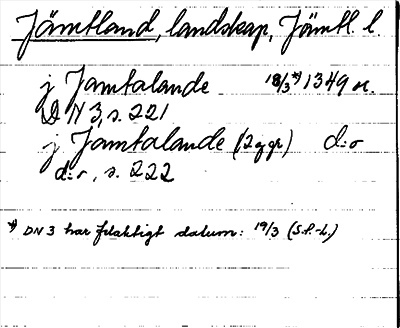 Jämtland, landskap, Jämtl. l.
j Jamtalande 18/3 *) 1349 n.
DN 3, s. 221
j Jamtalande (2 ggr) d:o
d:o, s. 222
*) DN 3 har felaktigt datum: 19/3 (S.P.-L.)